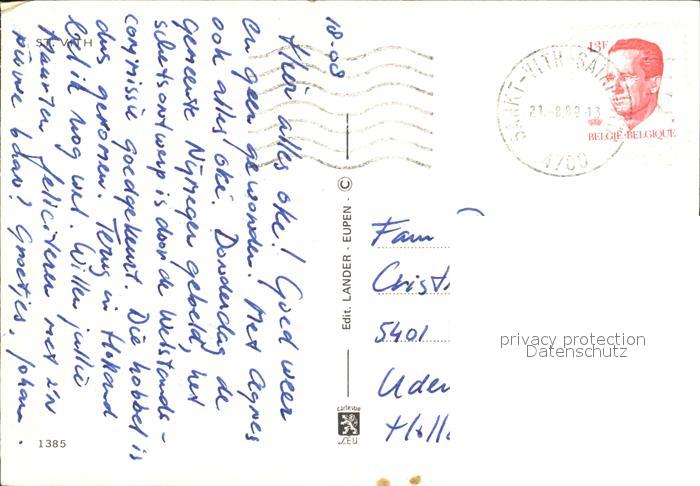 18-08
Hier alles oke! Goed weer
en geen gewonden. Met Agnes
ook alles oké. Donderdag de
gemeente Nijmegen gebeld, het
schetsontwerp is door de Welstands-
commissie goedgekeurd. Die hobbel is
dus genomen. Terug in Holland
bel ik nog wel. Willen jullie
Maarten feliciteren met z'n
nieuwe baan? Groetjes, Johan.
ST. VITH
1385
Edit. LANDER - EUPEN - ©
cartevue
LEU
13F
BELGIË-BELGIQUE
SANKT-VITH SAINT-VITH
21-8-89-13
4780
Fam
Crist
5401
Uden
Holl
privacy protection
Datenschutz